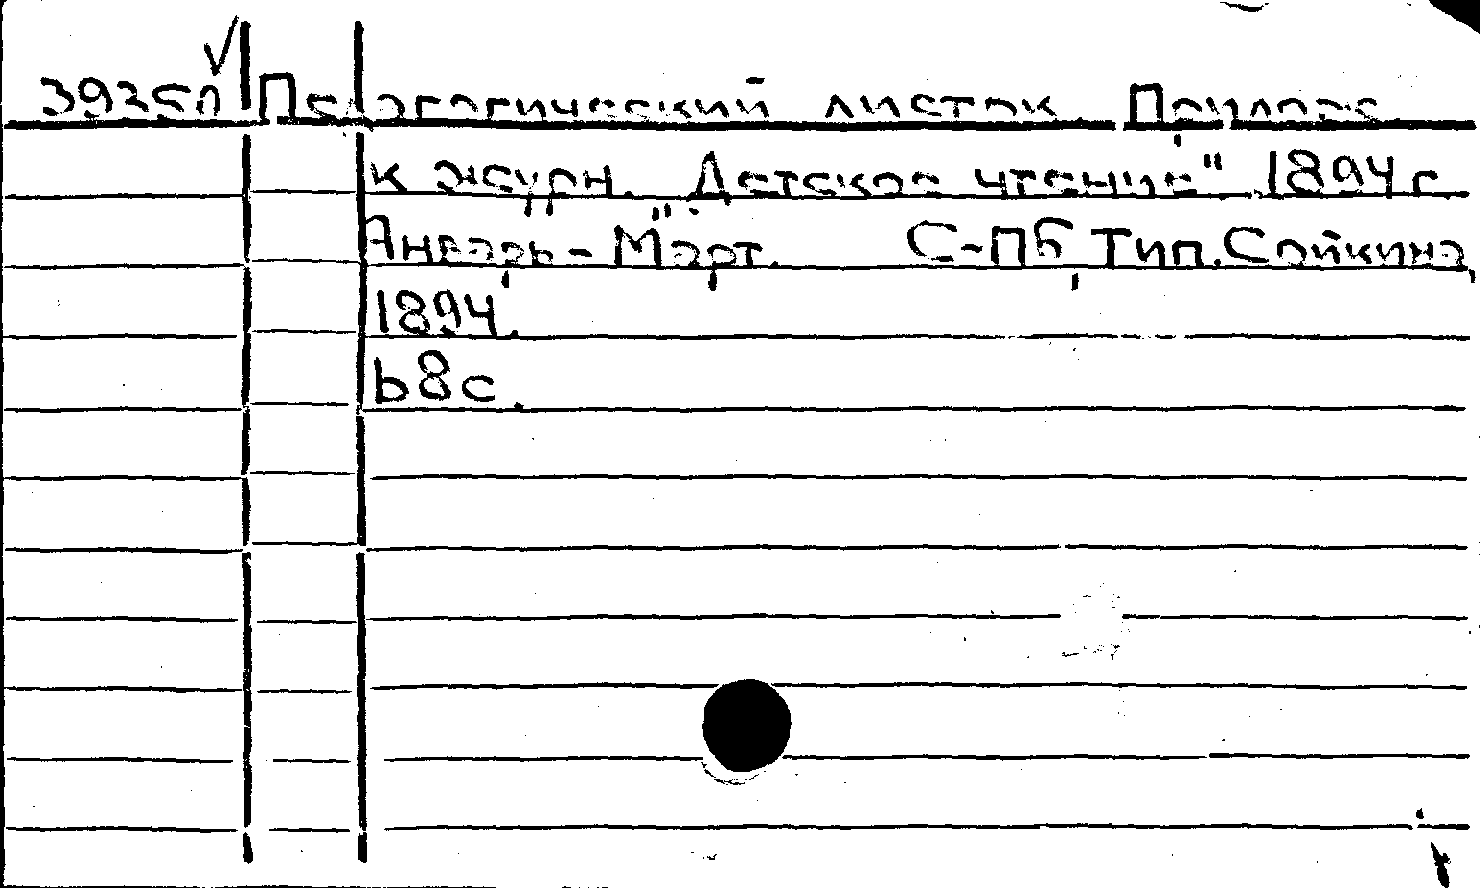 39350 Педагогический листок. Прилож.
к журн. "Детское чтение" 1894 г.
Январь - Март. С-Пб Тип. Сойкина,
1894.
68 с.